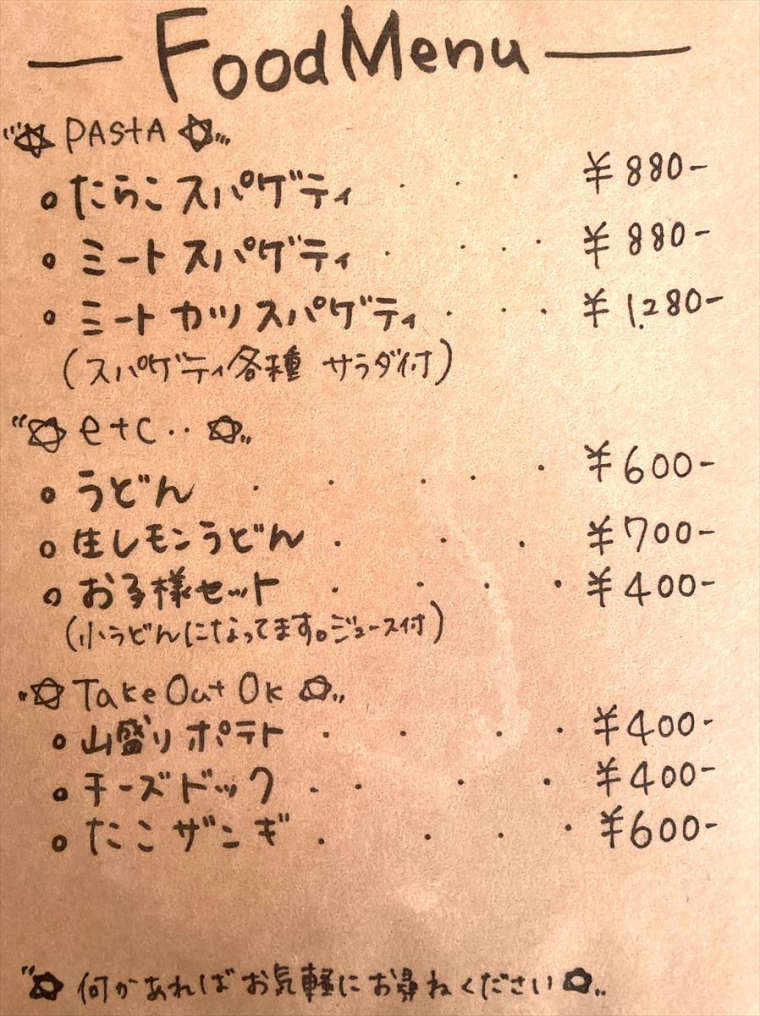 Food Menu
PAStA
たらこ スパゲティ ¥880-
ミート スパゲティ ¥880-
ミート カツ スパゲティ ¥1,280-
(スパゲティ各種 サラダ付)
etc‥
うどん ¥600-
生レモンうどん ¥700-
お子様セット ¥400-
(小うどんになってます。ジュース付)
Take Out Ok
山盛りポテト ¥400-
チーズドック ¥400-
たこザンギ ¥600-
何かあればお気軽にお尋ねください